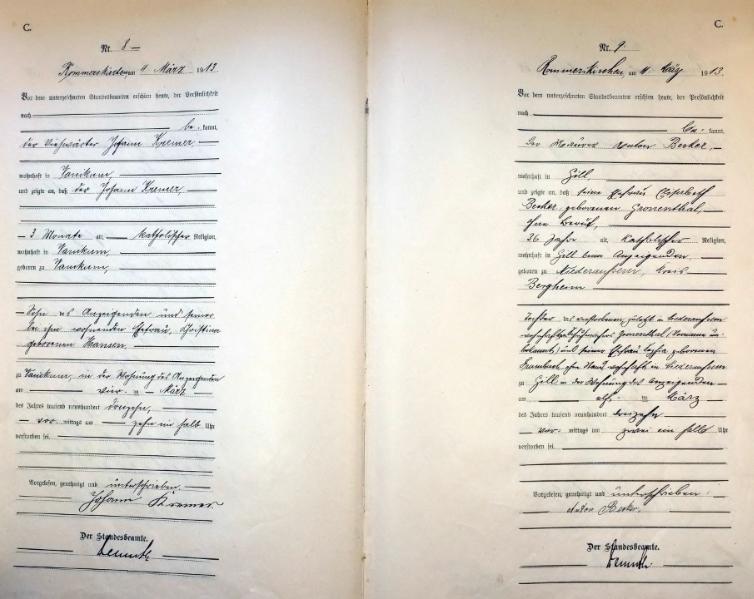 C.
Nr. 8
Rommerskirchen am 4. März 1913.
Vor dem unterzeichneten Standesbeamten erschien heute, der Persönlichkeit
nach
be kannt,
der Johann Kremer,
wohnhaft in Vanikum,
und zeigte an, daß der Johann Kremer,
3 Monate alt, katholischer Religion,
wohnhaft in Vanikum,
geboren zu Vanikum,
Sohn des Anzeigenden und seiner
bei ihm wohnenden Ehefrau, Christina
geborenen Hansen.
zu Vanikum, in der Wohnung des Anzeigenden
am vier. März
des Jahres tausend neunhundert dreizehn,
vor mittags um zehn ein halb Uhr
verstorben sei.
Vorgelesen, genehmigt und unterschrieben.
Johann Kremer
Der Standesbeamte.
C.
Nr. 9
Rommerskirchen, am 11. März 1913.
Vor dem unterzeichneten Standesbeamten erschien heute, der Persönlichkeit
nach
be kannt,
der Maurer Anton Becker,
wohnhaft in Gill,
und zeigte an, daß seine Ehefrau Elisabeth
Becker, geborenen Gronenthal,
ohne Beruf,
36 Jahre alt, katholischer Religion,
wohnhaft in Gill beim Anzeigenden,
geboren zu Niederaussem, Kreis
Bergheim
Tochter des verstorbenen, zuletzt in Niederaussem
wohnhaft Gronenthal (Vorname un-
bekannt) und seiner Ehefrau Sophia geborenen
ohne Stand, wohnhaft in Niederaussem
zu Gill in der Wohnung des Anzeigenden
am elf. März
des Jahres tausend neunhundert dreizehn
vor mittags um zwei ein halb Uhr
verstorben sei.
Vorgelesen, genehmigt und unterschrieben.
Anton Becker.
Der Standesbeamte.